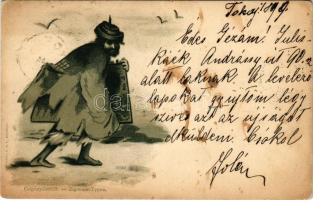 Tokaj 1899.
Edes Gézám! Julis
káék Andrásy út 90.a.
alatt laknak. A levelező
lapokat gyűjtöm légy
szíves azt az ujságot
elküldeni. Csókol
Jolán
Czigánytipusok. — Zigeuner-Typen.